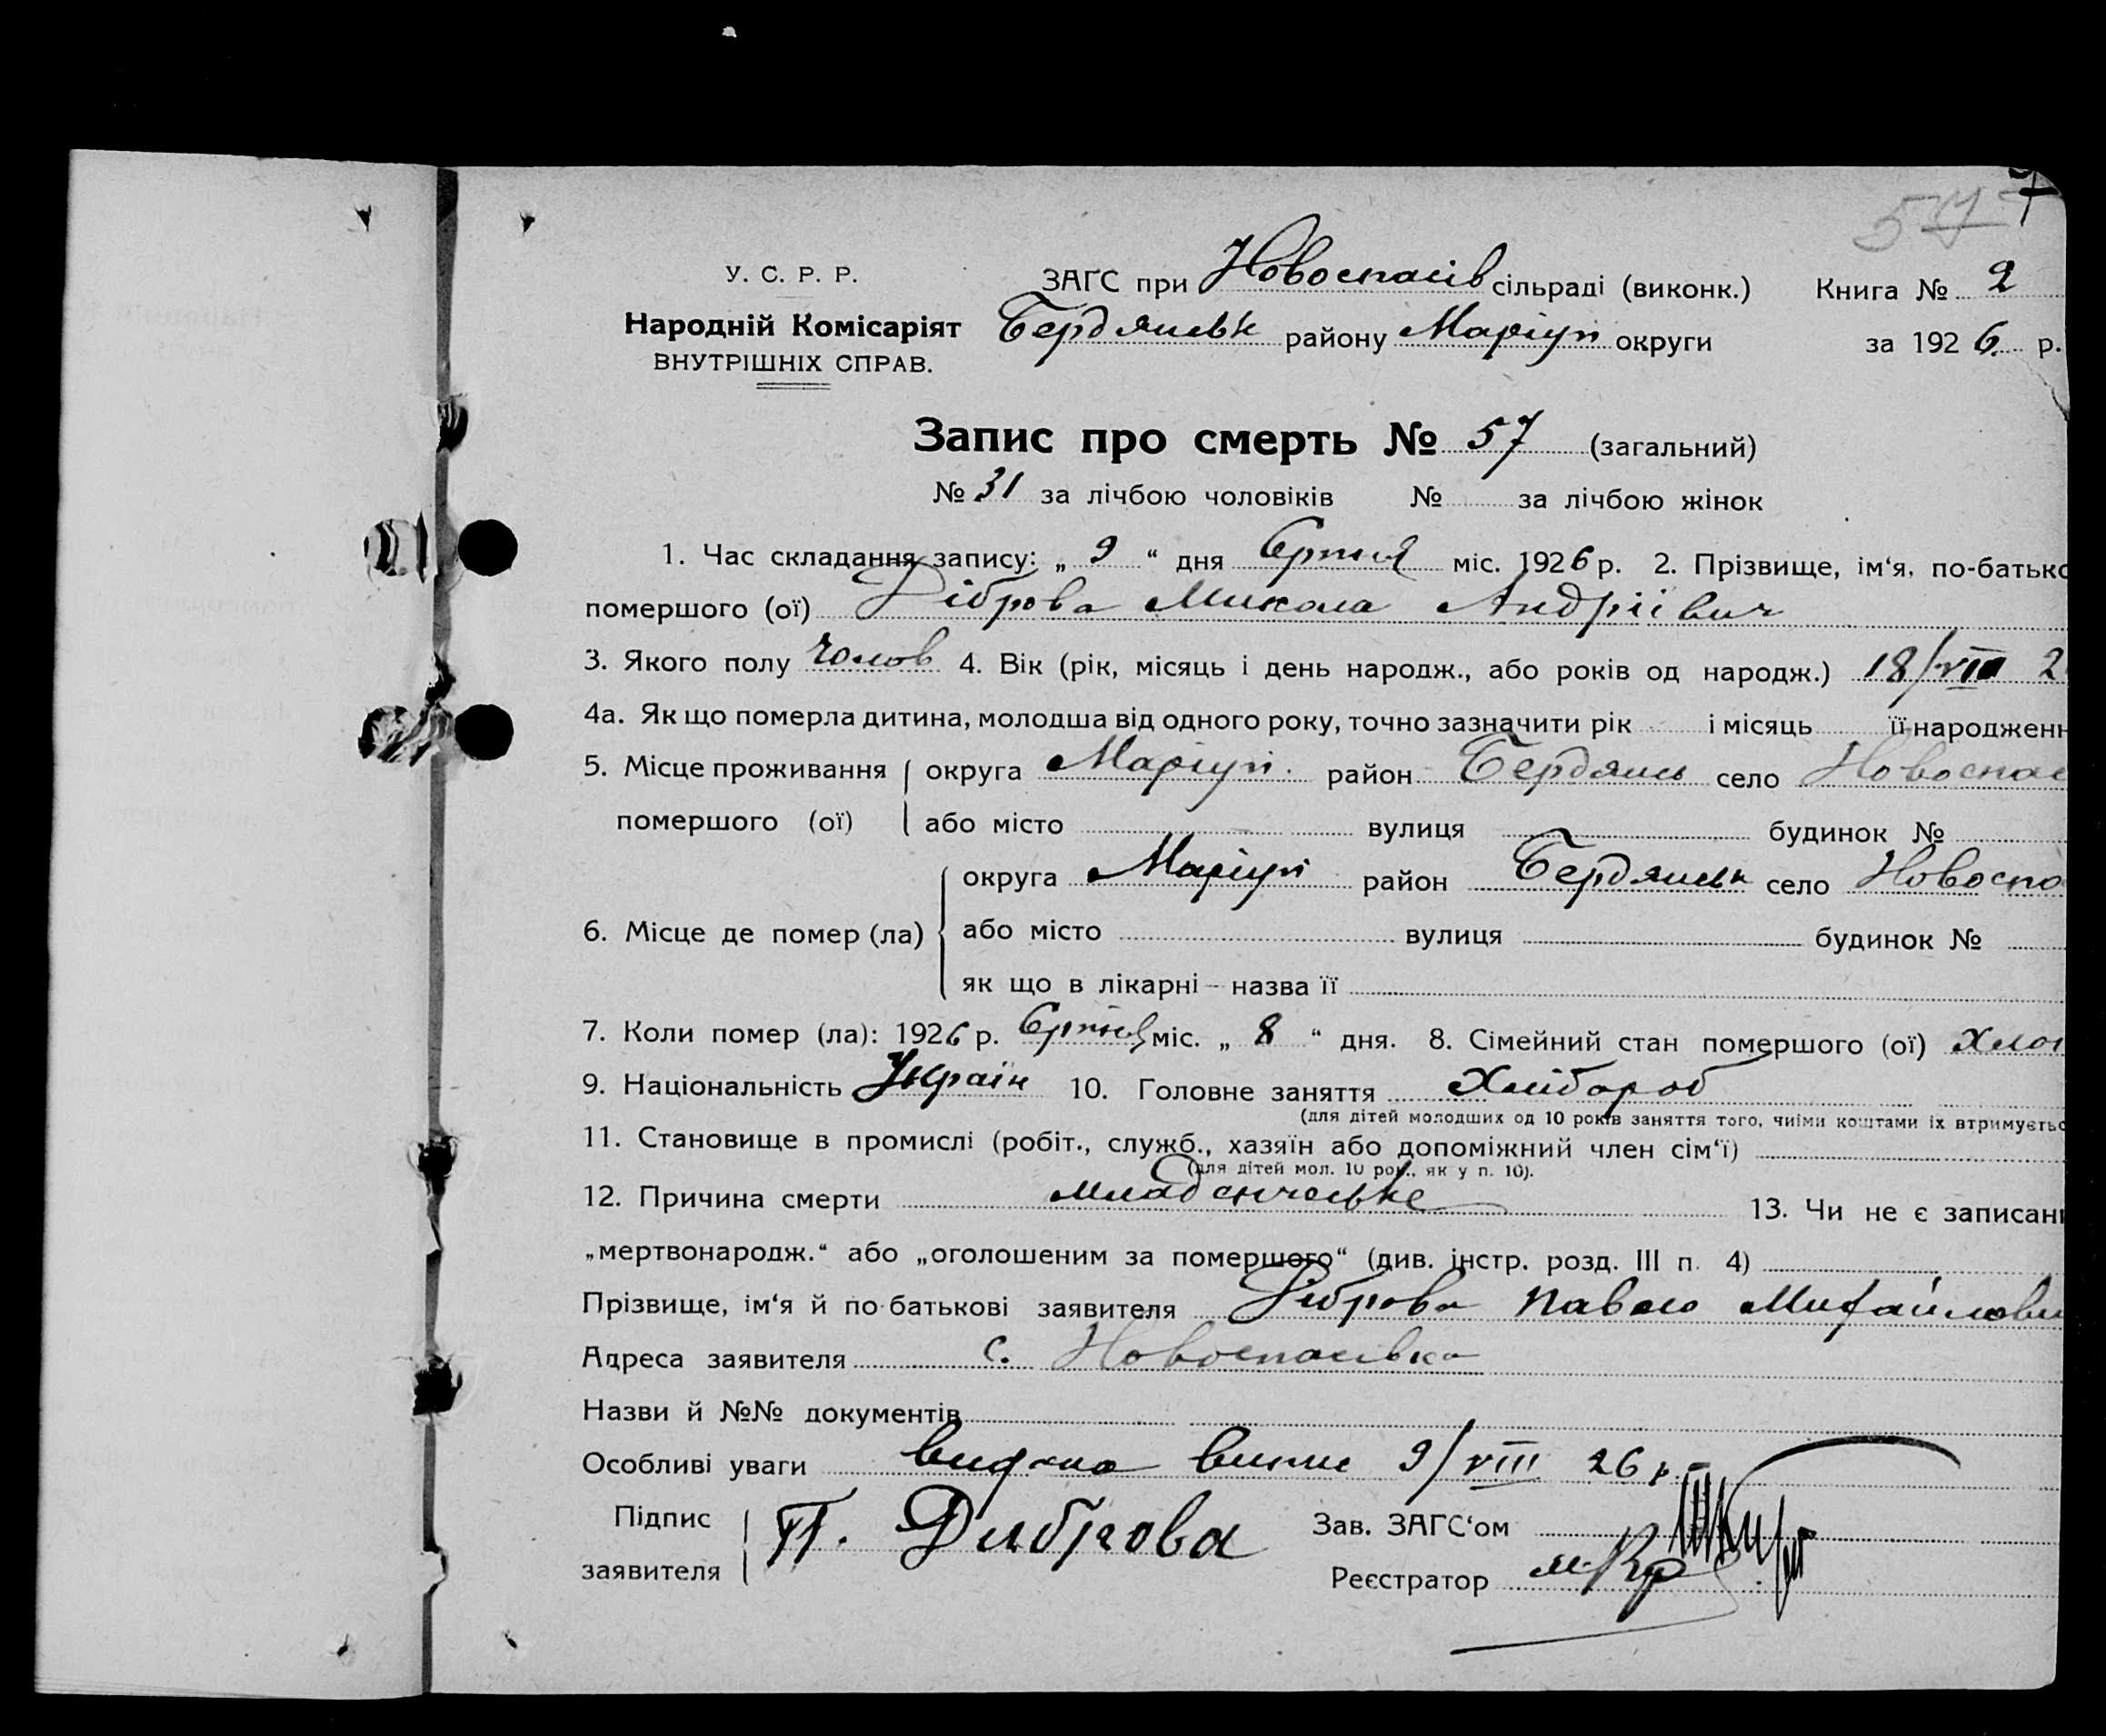 577
У. С. Р. Р.
ЗАГС при Новоспасів сільраді (виконк.) Книга № 2
Народній Комісаріят Бердянськ району Маріуп округи за 1926 р.
ВНУТРІШНІХ СПРАВ.
Запис про смерть № 57 (загальний)
№ 31 за лічбою чоловіків № за лічбою жінок
1. Час складання запису: „ 9 “ дня Серпня міс. 1926 р. 2. Прізвище, ім‘я, по-батько
помершого (ої) Діброва Микола Андріївич
3. Якого полу чолов 4. Вік (рік, місяць і день народж., або років од народж.) 18/VIII 2
4а. Як що померла дитина, молодша від одного року, точно зазначити рік і місяць її народженн
5. Місце проживання округа Маріуп. район Бердянсь село Новоспас
помершого (ої) або місто вулиця будинок №
округа Маріуп район Бердянськ село Новоспа
6. Місце де помер (ла) або місто вулиця будинок №
як що в лікарні – назва її
7. Коли помер (ла): 1926 р. Серпня міс. „ 8 “ дня. 8. Сімейний стан помершого (ої) Хлоп
9. Національність Україн 10. Головне заняття Хлібороб
(для дітей молодших од 10 років заняття того, чиїми коштами їх втримуєтьс
11. Становище в промислі (робіт., служб., хазяїн або допоміжний член сім‘ї)
(для дітей мол. 10 рок., як у п. 10).
12. Причина смерти младенческе 13. Чи не є записани
„мертвонародж.“ або „оголошеним за помершого“ (див. інстр. розд. III п. 4)
Прізвище, ім‘я й по-батькові заявителя Діброва Павло Михайлови
Адреса заявителя с. Новоспасівка
Назви й №№ документів
Особливі уваги видана випис 9/VIII 26 р.
Підпис П. Диброва Зав. ЗАГС‘ом
заявителя Реєстратор